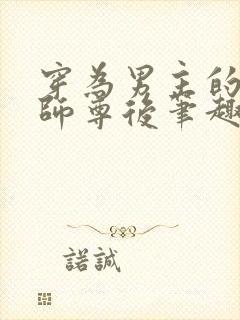 穿為男主的
師尊後筆趣
諾誠